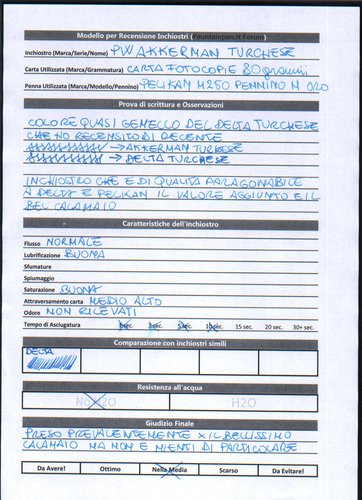 Modello per Recensione Inchiostri (Fountainpen.it Forum)
Inchiostro (Marca/Serie/Nome) PW AKKERMAN TURCHESE
Carta Utilizzata (Marca/Grammatura) CARTA FOTOCOPIE 80 grammi
Penna Utilizzata (Marca/Modello/Pennino) PELIKAN M250 PENNINO M ORO
Prova di scrittura e Osservazioni
COLORE QUASI GEMELLO DEL DELTA TURCHESE
CHE HO RECENSITO DI RECENTE
→ AKKERMAN TURKESE
→ DELTA TURCHESE
INCHIOSTRO CHE E DI QUALITA PARAGONABILE
A DELTA E PELIKAN IL VALORE AGGIUNTO E IL
BEL CALAMAIO
Caratteristiche dell'inchiostro
Flusso NORMALE
Lubrificazione BUONA
Sfumature
Spiumaggio
Saturazione BUONA
Attraversamento carta MEDIO ALTO
Odore NON RILEVATI
Tempo di Asciugatura 1 sec. 3 sec. 5 sec. 10 sec. 15 sec. 20 sec. 30+ sec.
Comparazione con inchiostri simili
DELTA
Resistenza all'acqua
No H2O H2O
Giudizio Finale
PRESO PREVALENTEMENTE X IL BELLISSIMO
CALAMAIO MA NON E MIENTI DI PARTICOLARE
Da Avere! Ottimo Nella Media Scarso Da Evitare!